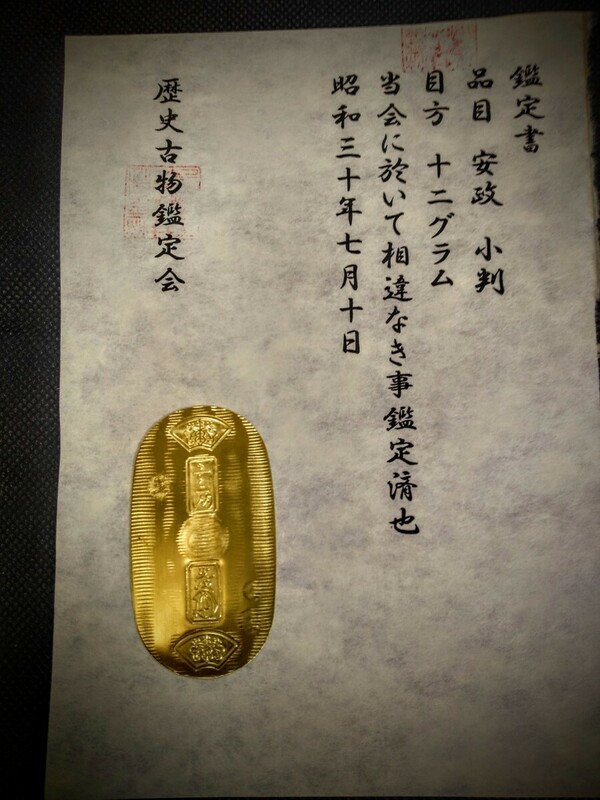 鑑定書
品目 安政 小判
目方 十二グラム
当会に於いて相違なき事鑑定済也
昭和三十年七月十日
歴史古物鑑定会